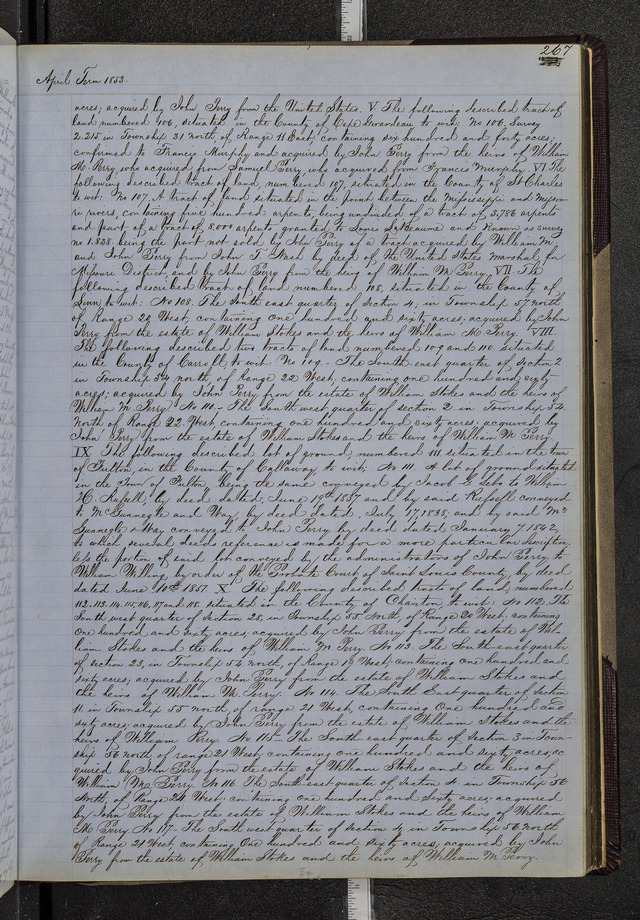 267
April Term 1853.
acres; acquired by John Perry from the United States. V The following described tract of
land numbered 106, situated in the County of Cape Girardeau to wit: No 106, Survey
2.215 in Township 31 north of Range 11 East; containing six hundred and forty acres;
confirmed to Francis Murphy and acquired by John Perry from the heirs of William
M. Perry who acquired from Samuel Perry who acquired from Frances Murphy. VI The
following described tract of land, numbered 107, situated in the County of St Charles
to wit: No 107. A tract of land situated in the Point between the Mississippi and Misson
ri rivers, containing five hundred arpents, being undivided of a tract of 3,786 arpents
and part of a tract of 8,000 arpents granted to Louis Beaume and known as survey
no 1.838. being the part not sold by John Perry of a tract acquired by William M.
and John Perry from John T. Nash by deed of the United States marshal for
Missouri District, and by John Perry from the heirs of William M. Perry. VII The
following described tract of land numbered 108, situated in the County of
Linn, to wit: No 108. The South east quarter of Section 4, in Township 57 north
of Range 22 West, containing one hundred and sixty acres; acquired by John
Perry from the estate of William Stokes and the heirs of William M. Perry. VIII
The following described two tracts of land numbered 109 and 110 situated
in the County of Carroll, to wit: No 109 - The South east quarter of Section 2
in Township 54 north, of Range 22 West, containing one hundred and sixty
acres; acquired by John Perry from the estate of William Stokes and the heirs of
William M. Perry. No 110 - The South west quarter of section 2 in Township 54
North of Range 22 West containing one hundred and sixty acres; acquired by
John Perry from the estate of William Stokes and the heirs of William M. Perry
IX The following described lot of ground, numbered 111 situated in the town
of Fulton, in the County of Callaway to wit: No 111 A lot of ground situated
in the Town of Fulton being the same conveyed by Jacob G. Lebo to William
H. Russell by deed dated June 19th 1837 and by said Russell conveyed
to McGunnegle and Way, by deed dated July 17, 1838; and by said Mc
Gunnegle & Way conveyed to John Perry by deed dated January 7, 1842,
to which several deeds reference is made for a more particular description,
less the portion of said lot conveyed by the administrators of John Perry, to
William Willing, by order of the Probate Court of Saint Louis County, by deed
dated June 10th 1851. X The following described tracts of land, numbered
112, 113, 114, 115, 116, 117 and 118. situated in the County of Chariton, to wit: No 112. The
South west quarter of Section 28, in Township 55 North, of Range 20 West, containing
One hundred and sixty acres; acquired by John Perry from the estate of Wil-
liam Stokes and the heirs of William M. Perry No 113. The South-east quarter
of section 23, in Township 54 north, of Range West, containing one hundred and
sixty acres; acquired by John Perry from the estate of William Stokes and
the heirs of William M. Perry. No 114. The South East quarter of Section
11 in Township 55 north, of range 21 West, containing One hundred and
sixty acres; acquired by John Perry from the estate of William Stokes and the
heirs of William Perry. No 115 - The South east quarter of Section 3 in Town-
ship 56 north of range 21 West, containing one hundred and sixty acres; ac
quired by John Perry from the estate of William Stokes and the heirs of
William M. Perry. No 116. The South east quarter of Section 4 in Township 56
North, of Range 21 West containing one hundred and Sixty acres; acquired
by John Perry from the estate of William Stokes and the heirs of William
M. Perry No 117 - The South west quarter of Section 4 in Township 56 north
of Range 21 West, containing One hundred and sixty acres, acquired by John
Perry from the estate of William Stokes and the heirs of William M. Perry.